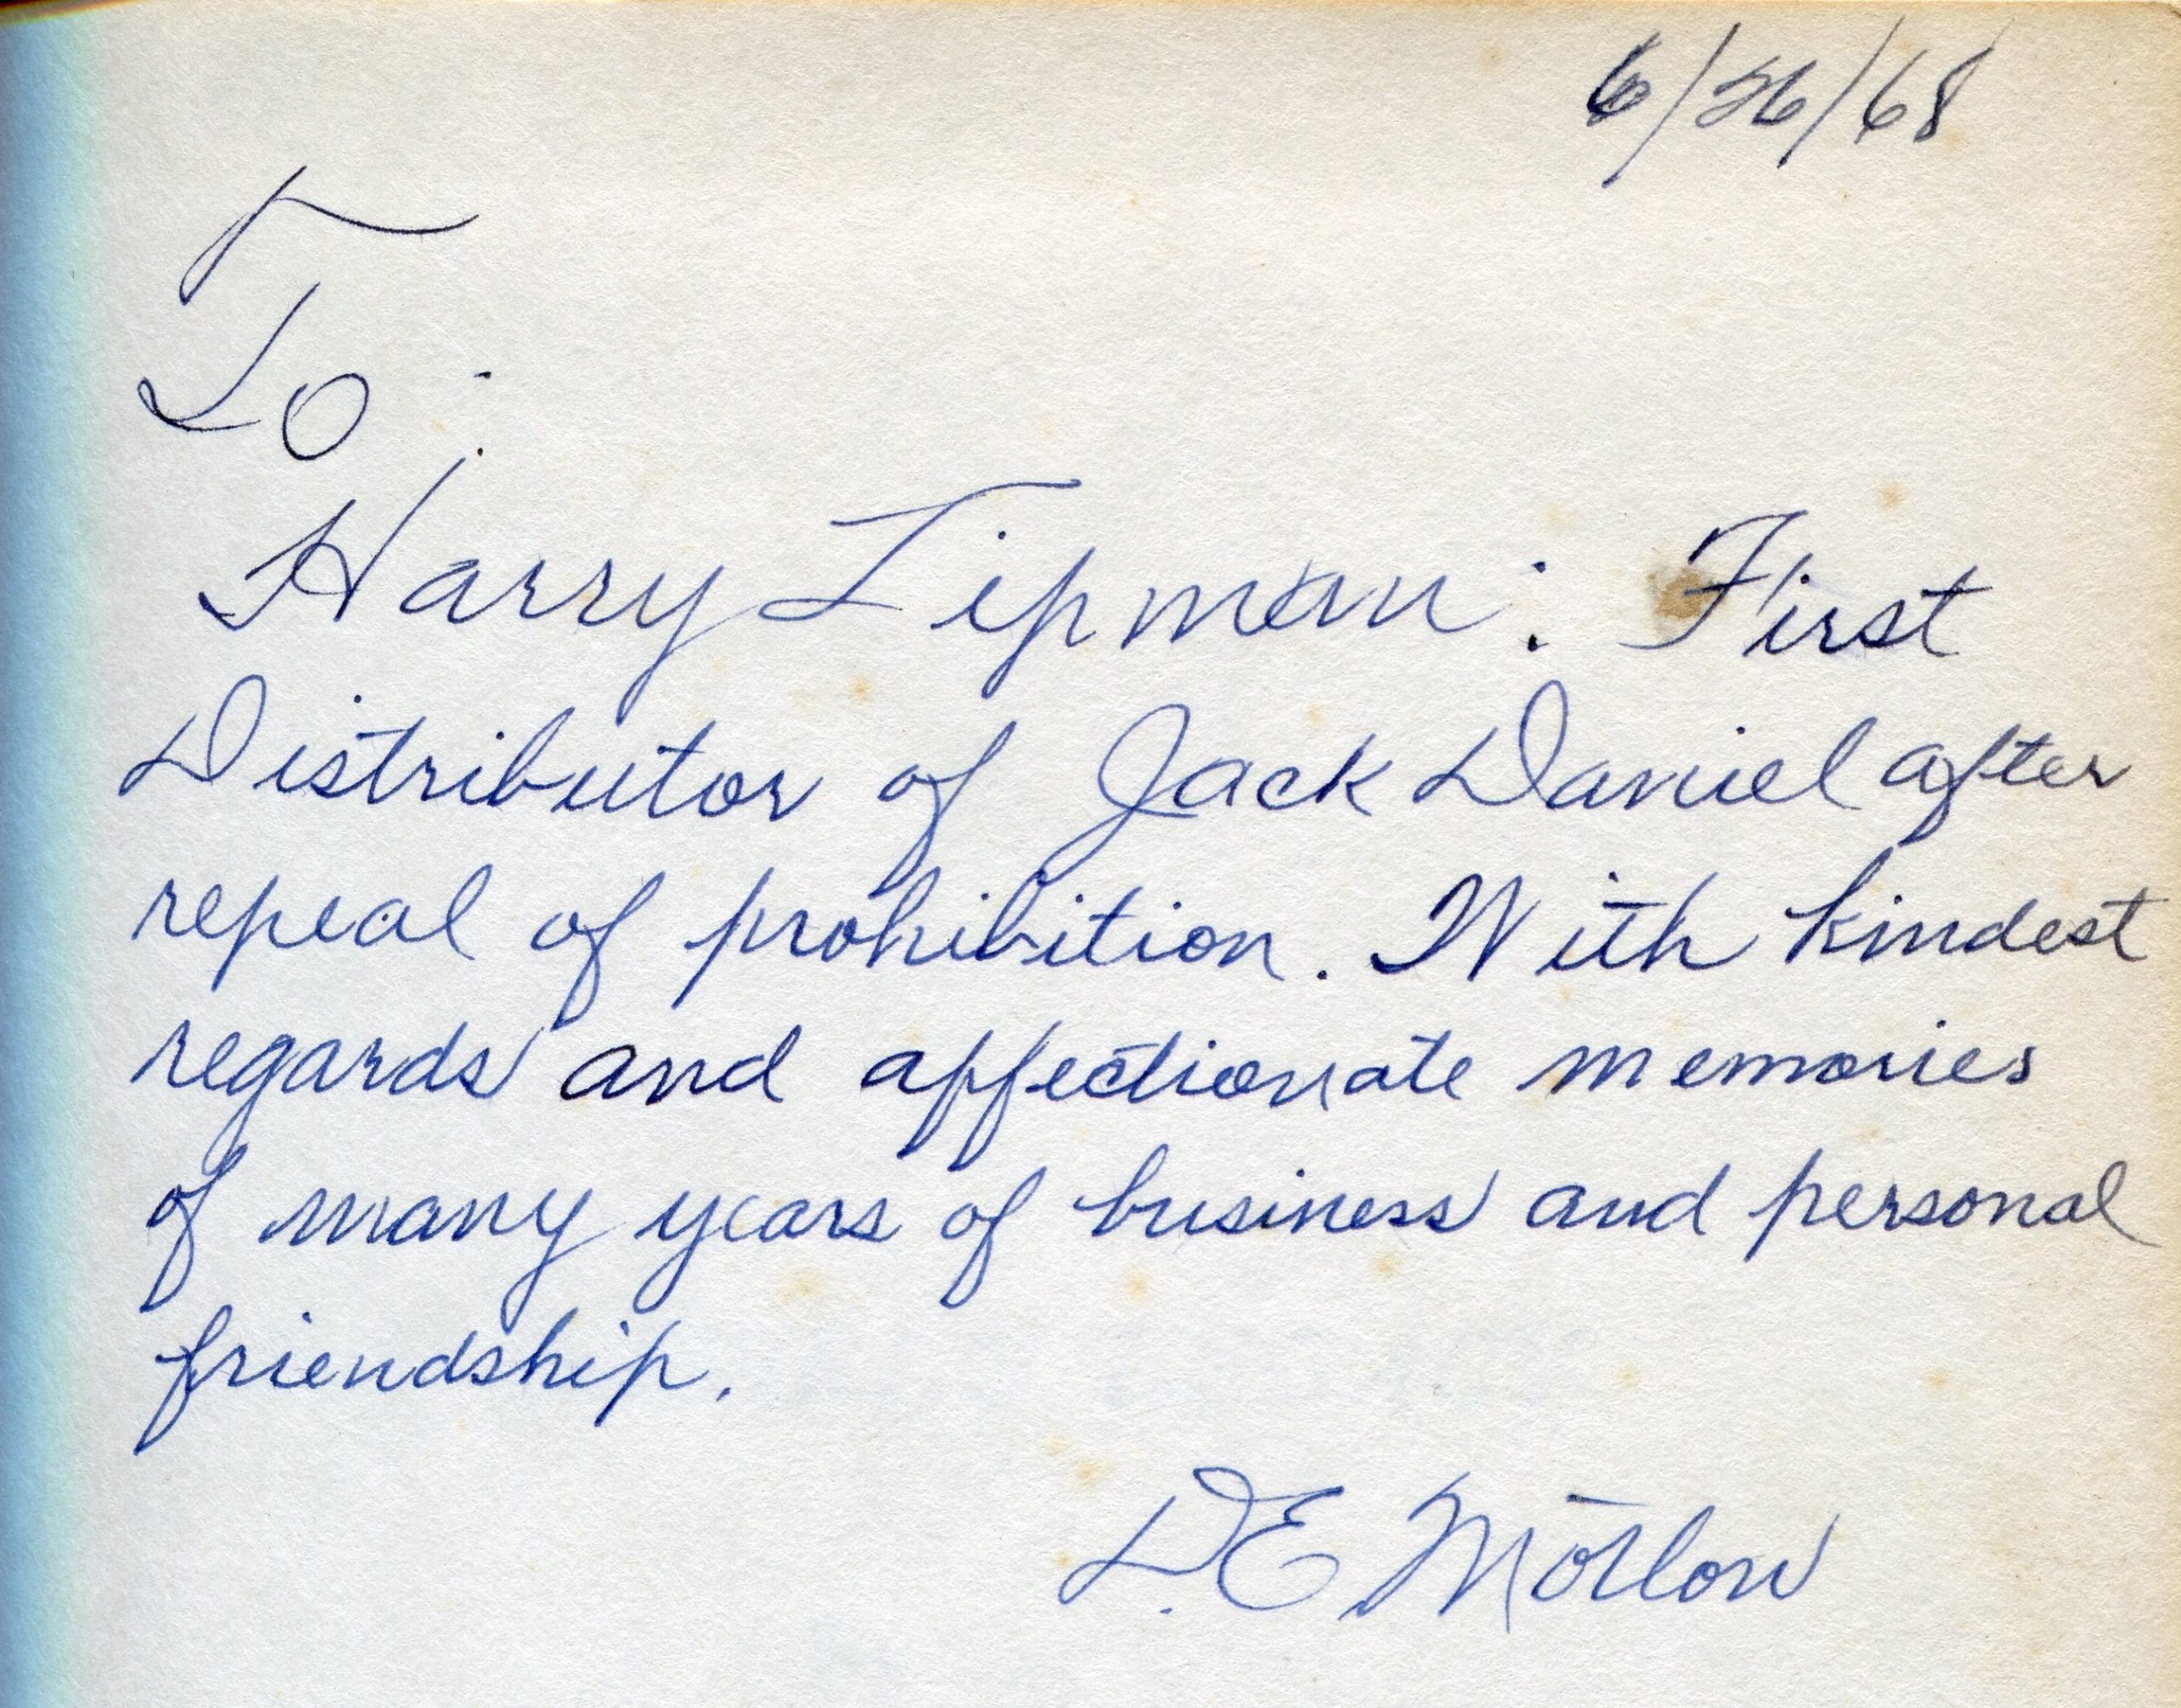 6/26/68
To:
Harry Lipman: First
Distributor of Jack Daniel after
repeal of prohibition. With kindest
regards and affectionate memories
of many years of business and personal
friendship.
D.E Motlow